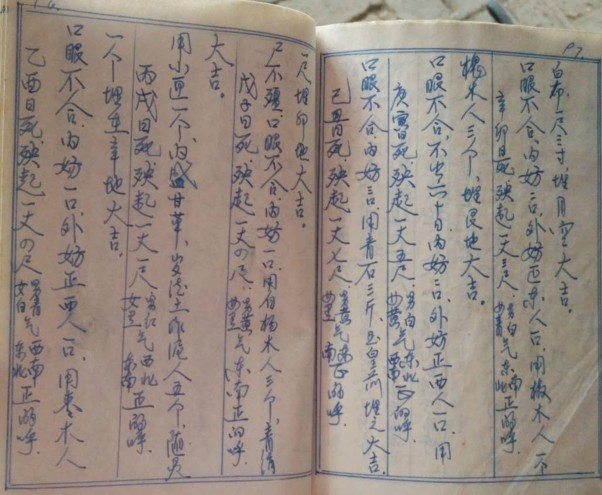 乙酉日死。殃起一丈の尺 男青气西南 女白 东北 正的呼
口眼不合。内妨一口外妨正西人一口。用枣木人
一个埋在辛地大吉。
丙戌日死。殃起一丈一尺 男红气西北 女黑 东南 正的呼
用小匣一个、内盛甘草、土作泥人五个、随灵
大吉。
戊子日死、殃起一丈の尺 男黄气东南正的呼
口眼不合。内妨一口用白杨木人三个、青
一尺埋卯地大吉。
己丑日死、殃起一丈七尺 正的呼
口眼不合。内妨三口。用青石三斤、玉皇前埋之大吉。
庚寅日死、殃起一丈五尺 男白气东北 女黄 西南 正的呼
口眼不合。不出六十日内妨二口。外妨正西人一口。用
槐木人三个、埋艮地大吉。
辛卯日死、殃起一丈三尺 男白气东北 女青 西南 正的呼
口眼不合。内妨一口、外妨正东人一口。用椒木人一个
白布一尺三寸、埋月空大吉。
97